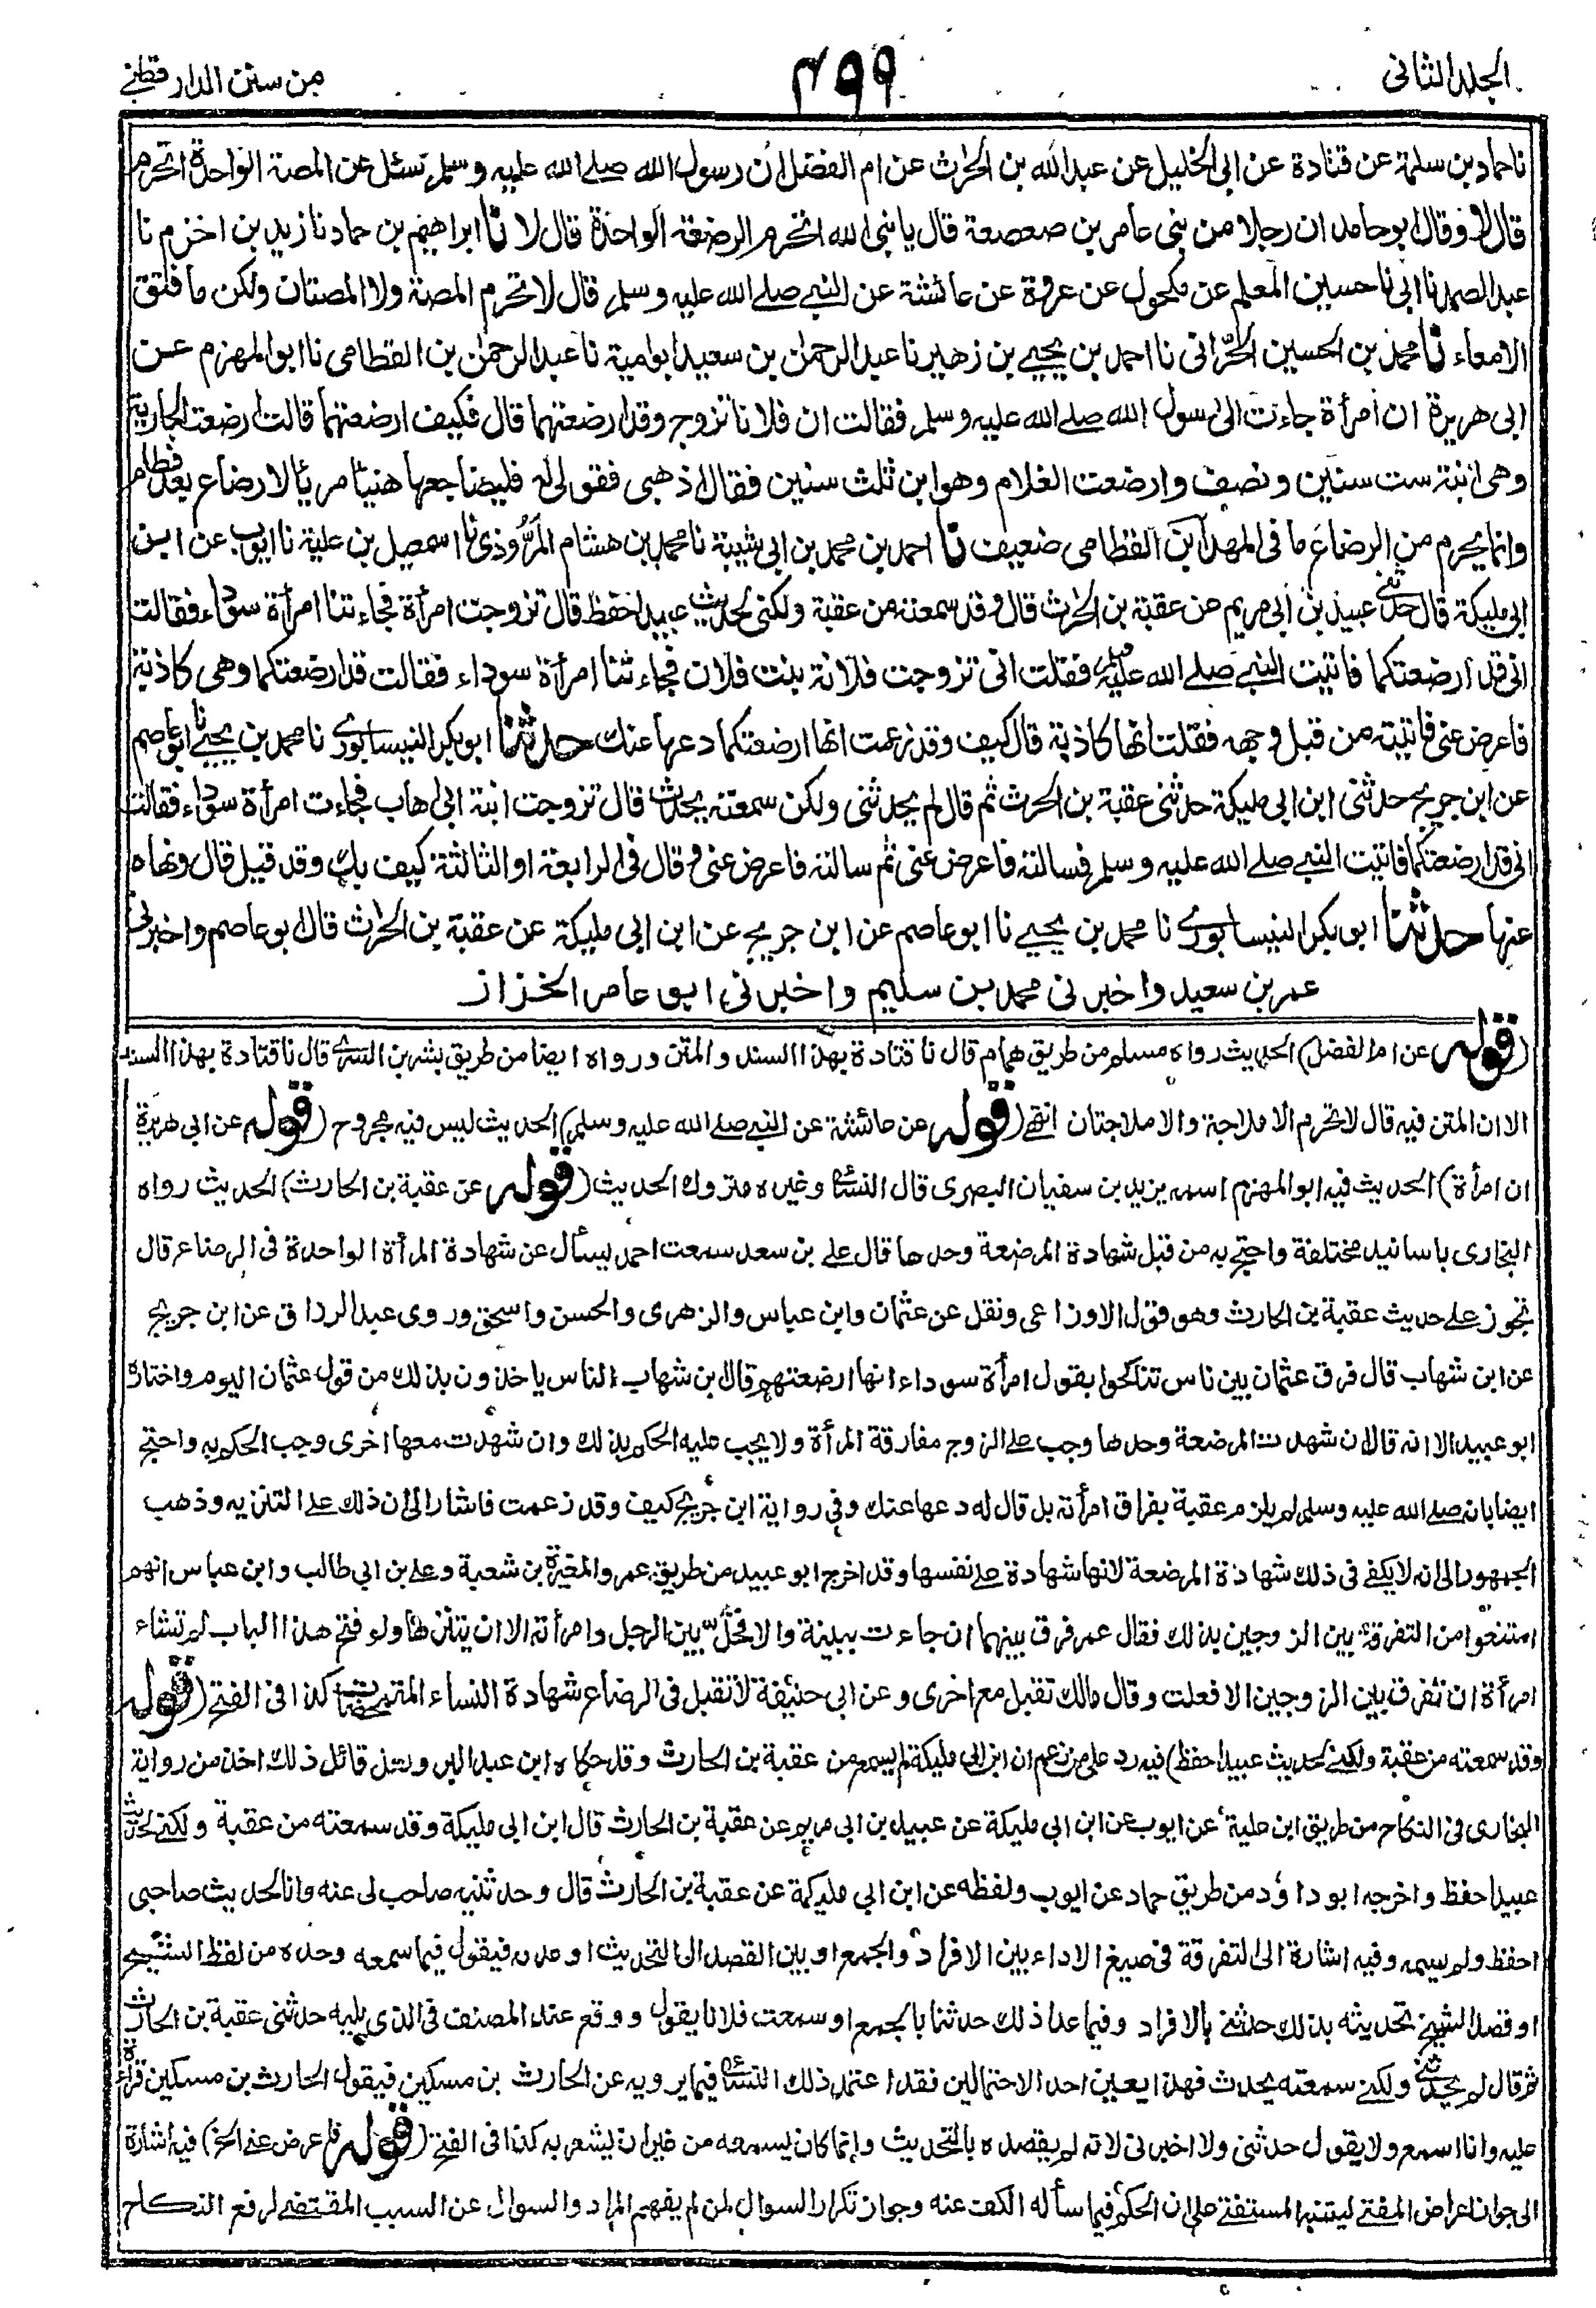 الجلد الثاني
٤٩٩
من سنن الدارقطني
نا حماد بن سلمة عن قتادة عن ابى الخليل عن عبد الله بن الحرث عن ام الفضل ان رسول الله صلے الله عليه وسلم سئل عن المصة الواحدة اتحرم
قال لا وقال ابو حامد ان رجلا من بنى عامر بن صعصعة قال يا نبى الله اتحرم الرضعة الواحدة قال لا نا ابراهيم بن حماد نا زيد بن اخزم نا
عبد الصمد نا ابى نا حسين المعلم عن مكحول عن عروة عن عائشة عن النبے صلے الله عليه وسلم قال لا تحرم المصة ولا المصتان ولكن ما فتق
الامعاء نا محمد بن الحسين الحرّانى نا احمد بن يحيے بن زهير نا عبد الرحمن بن سعيد ابو امية نا عبد الرحمن بن القطامى نا ابو المهزم عن
ابى هريرة ان امرأة جاءت الى رسول الله صلے الله عليه وسلم فقالت ان فلانا تزوج وقد ارضعتهما قال فكيف ارضعتهما قالت ارضعت الجارية
وهى ابنة ست سنين ونصف وارضعت الغلام وهو ابن ثلث سنين فقال اذهبى فقولى له فليضاجعها هنيئا مريئا لا رضاع بعد فطام
وانما يحرم من الرضاع ما فى المهد ابن القطامى ضعيف نا احمد بن محمد بن ابى شيبة نا محمد بن هشام المروُّذى نا اسمعيل بن علية نا ايوب عن ابن
ابى مليكة قال حدثنى عبيد بن ابى مريم عن عقبة بن الحرث قال وقد سمعته من عقبة ولكنى لحديث عبيد احفظ قال تزوجت امرأة فجاءتنا امرأة سوداء فقالت
انى قد ارضعتكما فاتيت النبے صلے الله عليه وسلم فقلت انى تزوجت فلانة بنت فلان فجاءتنا امرأة سوداء فقالت قد ارضعتكما وهى كاذبة
فاعرض عنى فاتيته من قبل وجهه فقلت انها كاذبة قال كيف وقد زعمت انها ارضعتكما دعها عنك حدثنا ابو بكر النيسابورے نا محمد بن يحيے نا ابو عاصم
عن ابن جريج حدثنى ابن ابى مليكة حدثنى عقبة بن الحرث ثم قال لم يحدثنى ولكن سمعته يحدث قال تزوجت ابنة ابى اهاب فجاءت امرأة سوداء فقالت
انى قد ارضعتكما فاتيت النبے صلے الله عليه وسلم فسالته فاعرض عنى ثم سالته فاعرض عنى وقال فى الرابعة او الثالثة كيف بك وقد قيل قال ونهاه
عنها حدثنا ابو بكر النيسابورے نا محمد بن يحيے نا ابو عاصم عن ابن جريج عن ابن ابى مليكة عن عقبة بن الحرث قال ابو عاصم واخبرنى
عمر بن سعيد واخبرنى محمد بن سليم واخبرنى ابو عامر الخزاز
(قوله عن ام الفضل) الحديث رواه مسلم من طريق همام قال نا قتادة بهذا السند والمتن ورواه ايضا من طريق بشر بن السرے قال نا قتادة بهذا السند
الا ان المتن فيه قال لا تحرم الاملاجة والاملاجتان انتهے (قوله عن عائشة عن النبے صلے الله عليه وسلم) الحديث ليس فيه مجروح (قوله عن ابى هريرة
ان امرأة) الحديث فيه ابو المهزم اسمه يزيد بن سفيان البصرى قال النسائے وغيره متروك الحديث (قوله عن عقبة بن الحارث) الحديث رواه
البخارى باسانيد مختلفة واحتج به من قبل شهادة المرضعة وحدها قال على بن سعد سمعت احمد يسأل عن شهادة المرأة الواحدة فى الرضاع قال
تجوز علے حديث عقبة بن الحارث وهو قول الاوزاعى ونقل عن عثمان وابن عباس والزهرى والحسن واسحق وروى عبد الرزاق عن ابن جريج
عن ابن شهاب قال فرق عثمان بين ناس تناكحوا بقول امرأة سوداء انها ارضعتهم قال ابن شهاب الناس ياخذون بذلك من قول عثمان اليوم واختاره
ابو عبيد الا انه قال ان شهدت المرضعة وحدها وجب علے الزوج مفارقة المرأة ولا يجب عليه الحكم بذلك وان شهدت معها اخرى وجب الحكم به واحتج
ايضا بانه صلے الله عليه وسلم لم يلزم عقبة بفراق امرأته بل قال له دعها عنك وفى رواية ابن جريج كيف وقد زعمت فاشار الى ان ذلك علے التنزيه وذهب
الجمهور الى انه لا يكفے فى ذلك شهادة المرضعة لانها شهادة علے نفسها وقد اخرج ابو عبيد من طريق عمر والمغيرة بن شعبة وعلے بن ابى طالب وابن عباس انهم
امتنعوا من التفرقة بين الزوجين بذلك فقال عمر فرق بينهما ان جاءت ببينة والا فخلّ بين الرجل وامرأته الا ان يتنزها ولو فتح هذا الباب لم تشاء
امرأة ان تفرق بين الزوجين الا فعلت وقال مالك تقبل مع اخرى وعن ابى حنيفة لا تقبل فى الرضاع شهادة النساء المتمحضات كذا فى الفتح (قوله
وقد سمعته من عقبة ولكنے لحديث عبيد احفظ) فيه رد على من زعم ان ابن ابى مليكة لم يسمع من عقبة بن الحارث وقد حكاه ابن عبد البر ولعل قائل ذلك اخذ من رواية
البخارى فى النكاح من طريق ابن علية عن ايوب عن ابن ابى مليكة عن عبيد بن ابى مريم عن عقبة بن الحارث قال ابن ابى مليكة وقد سمعته من عقبة ولكنے لحديث
عبيد احفظ واخرجه ابو داؤد من طريق حماد عن ايوب ولفظه عن ابن ابى مليكة عن عقبة بن الحارث قال وحدثنيه صاحب لى عنه وانا لحديث صاحبى
احفظ ولم يسمه وفيه اشارة الى التفرقة فى صيغ الاداء بين الافراد والجمع او بين القصد الى التحديث او عدمه فيقول فيما سمعه وحده من لفظ الشيخ
او قصد الشيخ تحديثه بذلك حدثنے بالافراد وفيما عدا ذلك حدثنا بالجمع او سمعت فلانا يقول ووقع عند المصنف فى الذى يليه حدثنى عقبة بن الحارث
ثم قال لم يحدثنے ولكنے سمعته يحدث فهذا يعين احد الاحتمالين فقد اعتمد ذلك النسائے فيما يرويه عن الحارث بن مسكين فيقول الحارث بن مسكين قراءة
عليه وانا اسمع ولا يقول حدثنى ولا اخبرنى لانه لم يقصده بالتحديث وانما كان يسمعه من غير ان يشعر به كذا فى الفتح (قوله فاعرض عنے الخ) فيه اشارة
الى جواز اعراض المفتے ليتنبه المستفتے على ان الحكم فيما سأله الكف عنه وجواز تكرار السوال لمن لم يفهم المراد والسوال عن السبب المقتضے لرفع النكاح